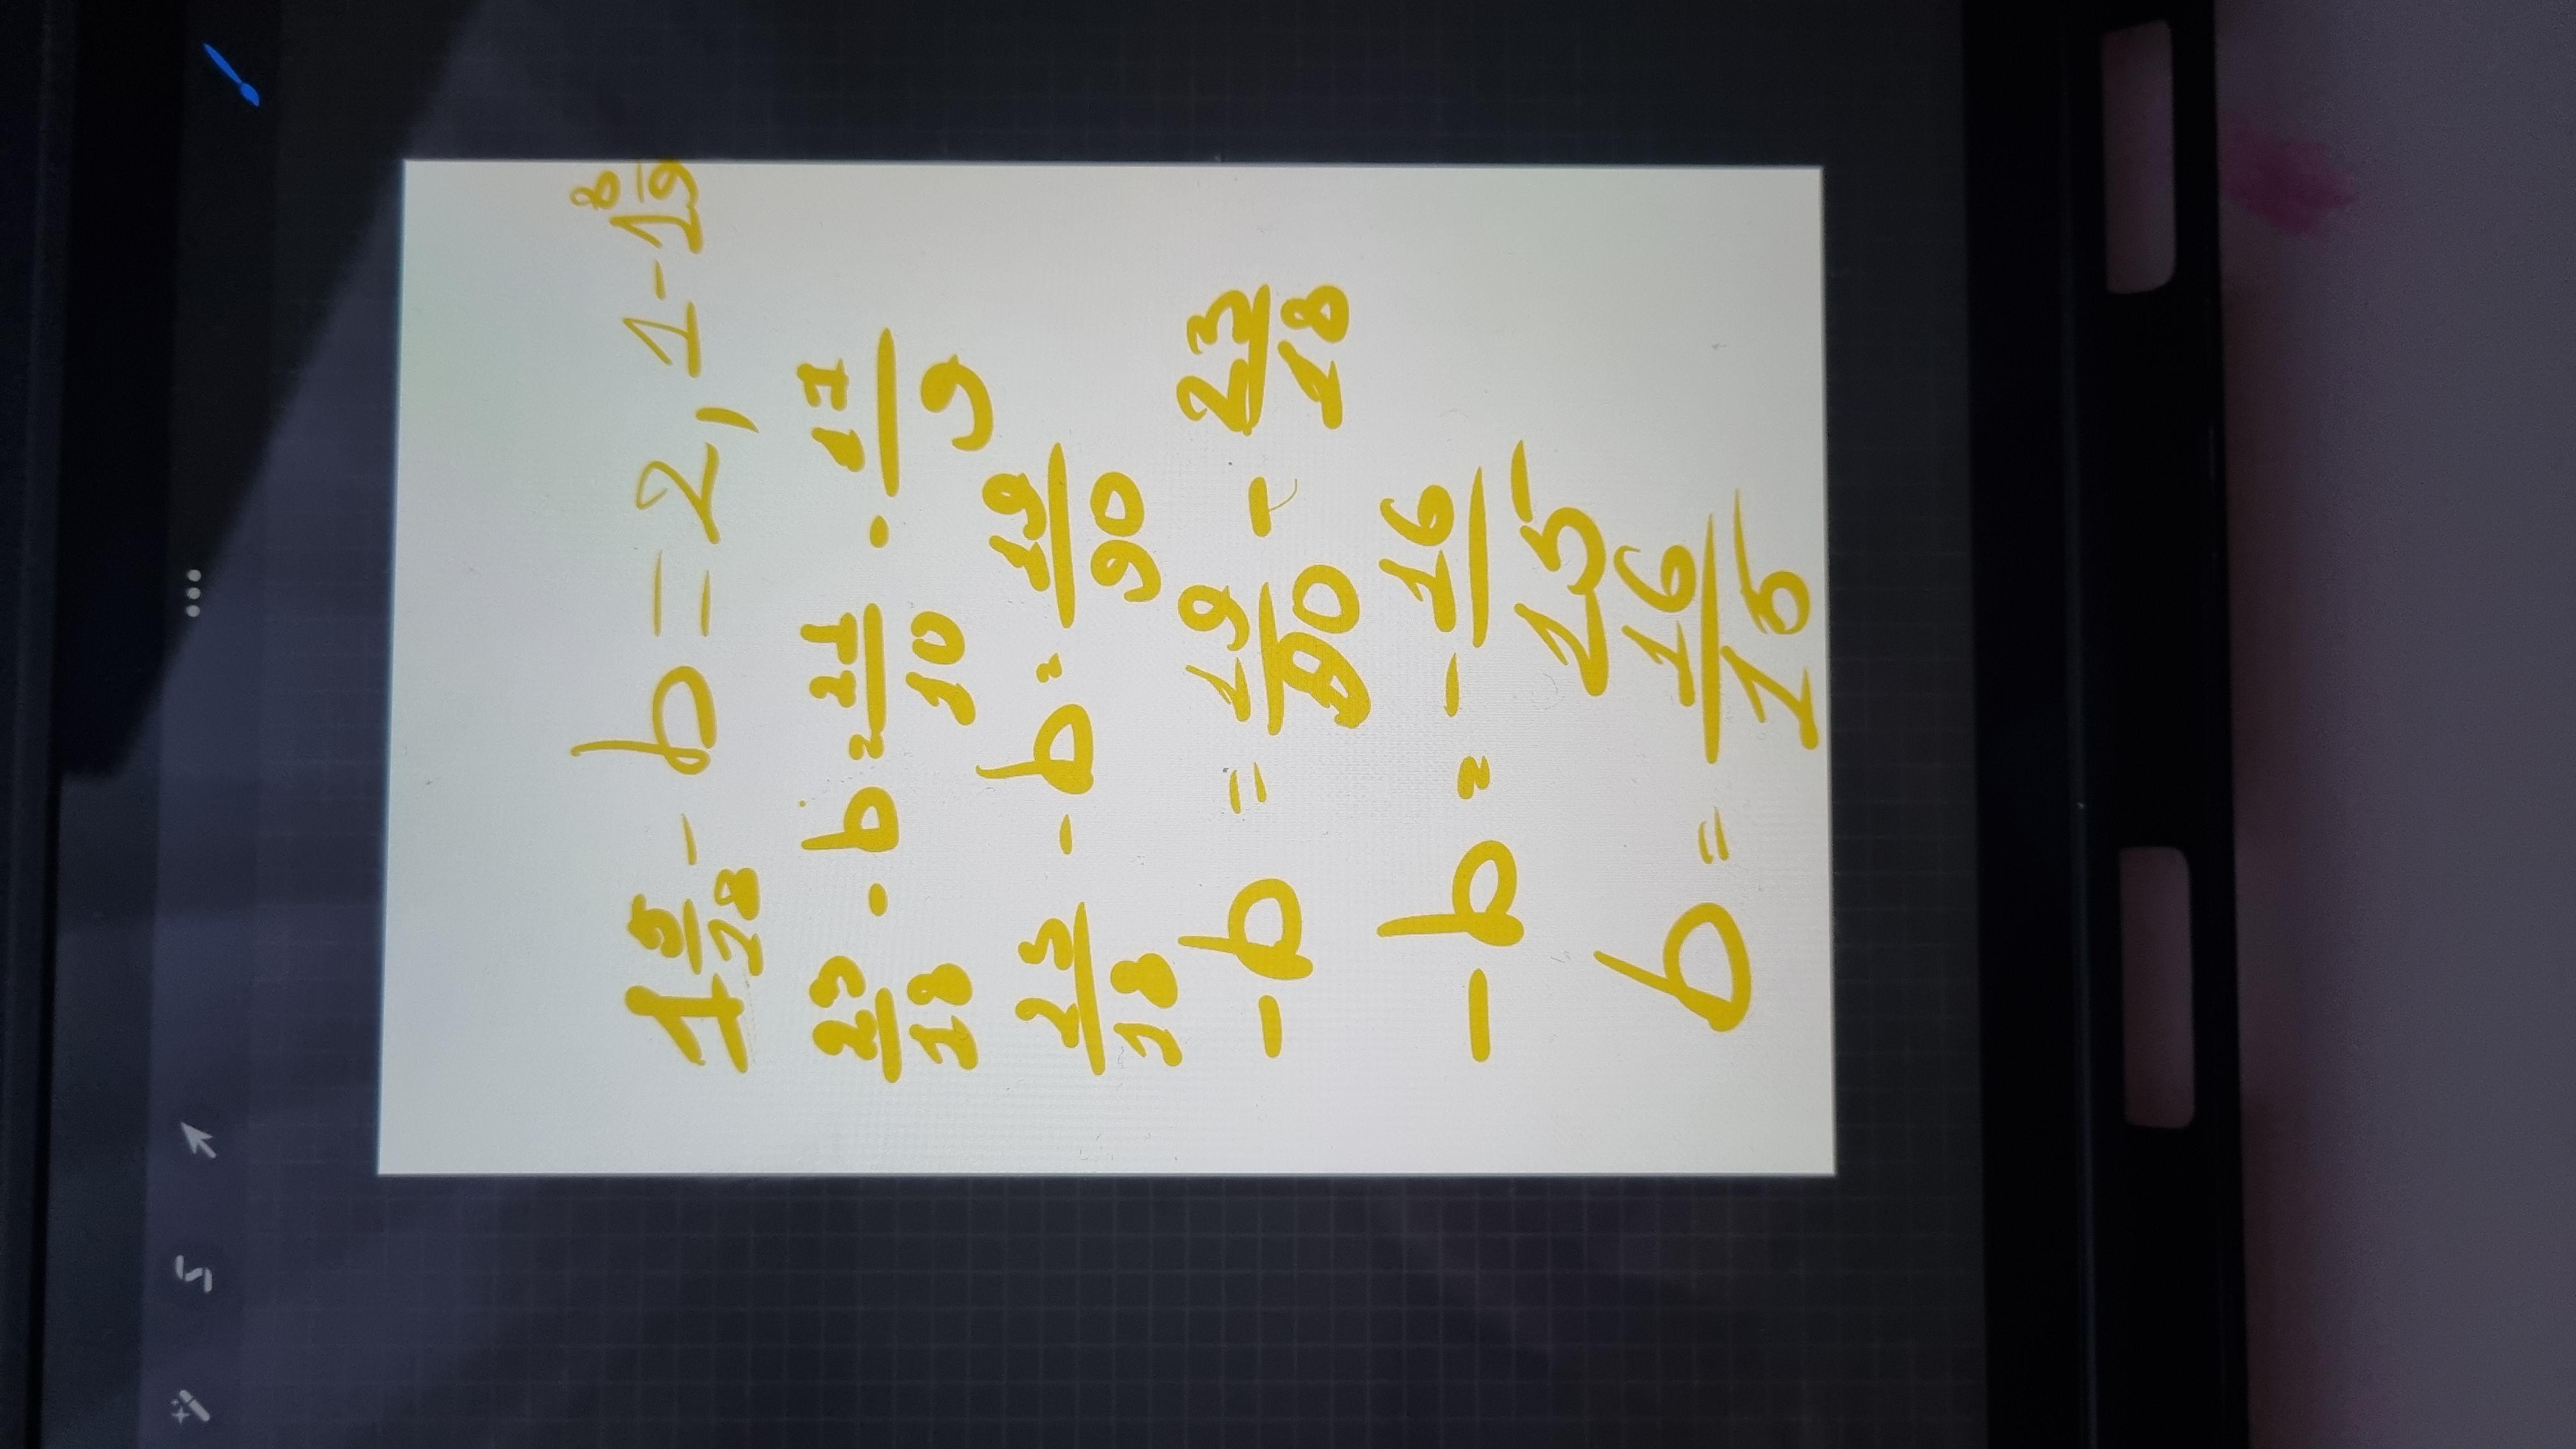 1 5/18 - b = 2,1 - 1 8/9
23/18 - b = 21/10 - 17/9
23/18 - b = 19/90
-b = 19/90 - 23/18
-b = - 16/15
b = 16/15